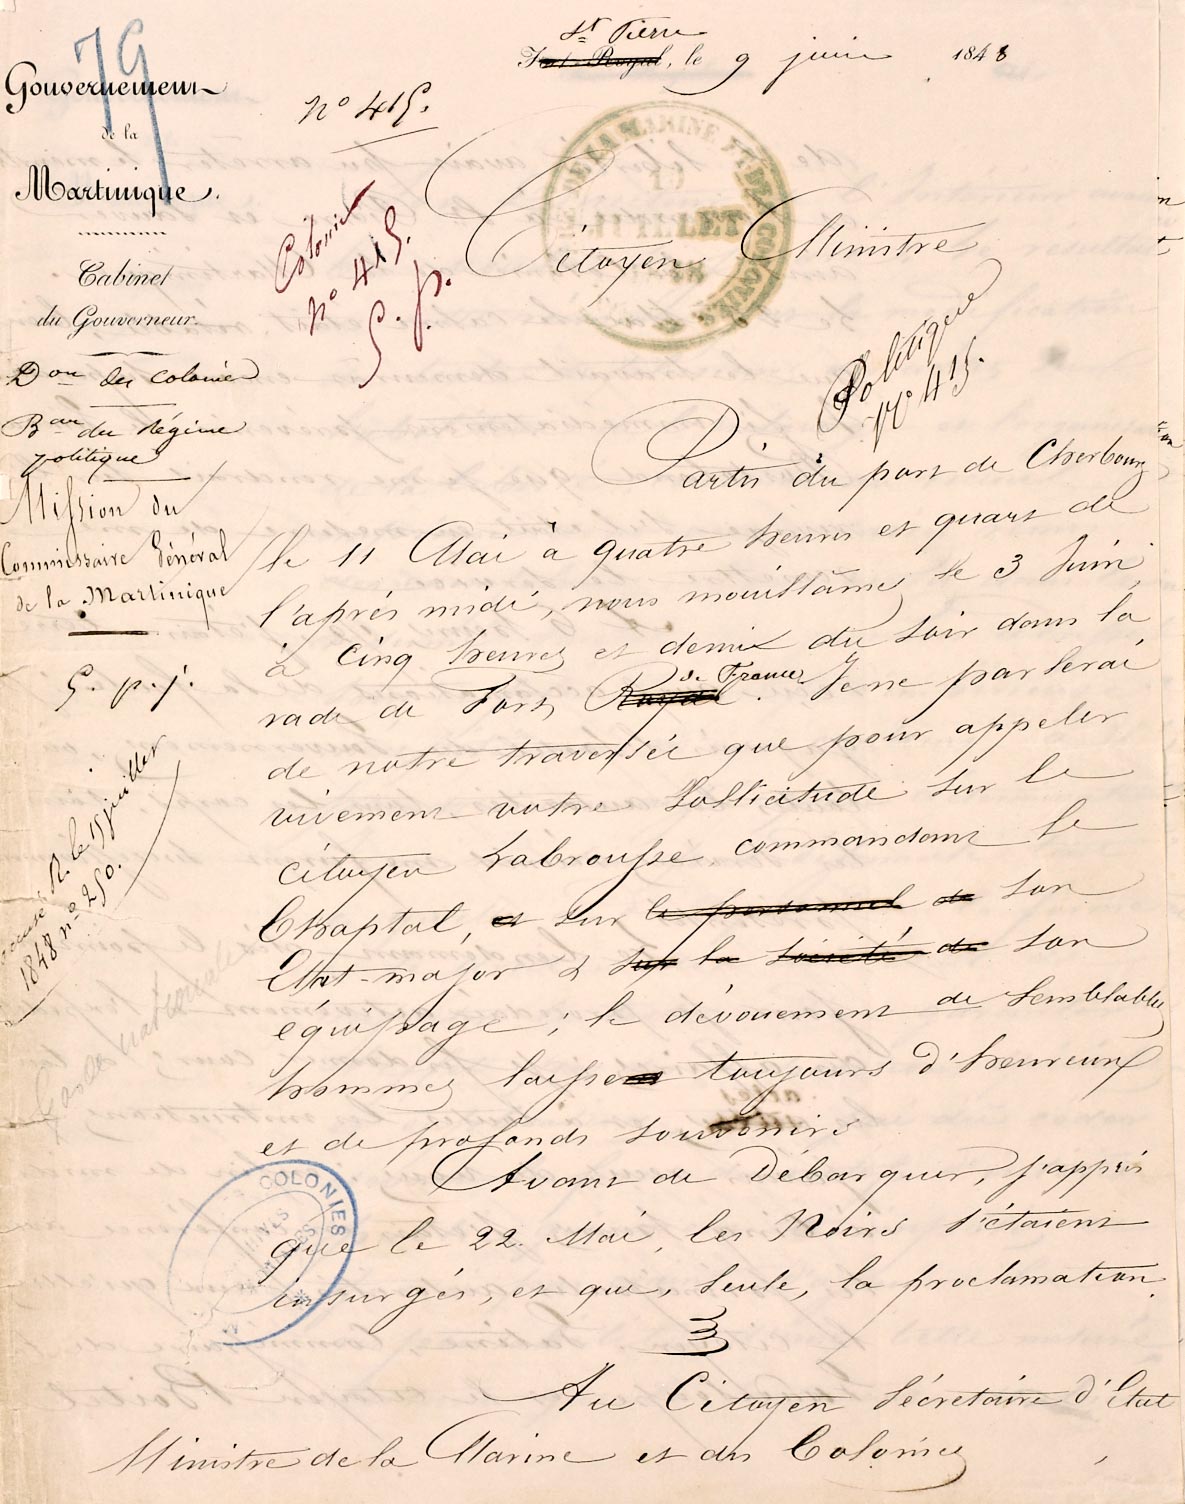 79
Gouvernement
de la
Martinique.
Cabinet
du Gouverneur.
Don des colonies
Bau du Régime
politique
Mission du
Commissaire Général
de la Martinique
G. p. j.
R. le 15 juillet
1848 n° 250.
Gardes nationales
St Pierre
Fort-Royal, le 9 juin 1848
N° 415.
Colonies
N° 415.
G. p.
DE LA MARINE ET DES COLONIES
19
JUILLET
Citoyen Ministre
Politique
N° 415.
Partis du port de Cherbourg
le 11 Mai à quatre heures et quart de
l'après midi, nous mouillâmes le 3 Juin
à cinq heures et demie du soir dans la
rade de Fort Royal de France. Je ne parlerai
de notre traversée que pour appeler
vivement votre sollicitude sur le
citoyen Labrousse, commandant le
Chaptal, et sur le personnel de son
Etat-major & sur la société de son
équipage ; le dévouement de semblables
hommes laissent toujours d'heureux
et de profonds souvenirs
Avant de Débarquer, j'appris
que le 22 Mai, les Noirs s'étaient
insurgés, et que, seule, la proclamation
COLONIES
Au Citoyen Sécretaire d'Etat
Ministre de la Marine et des Colonies